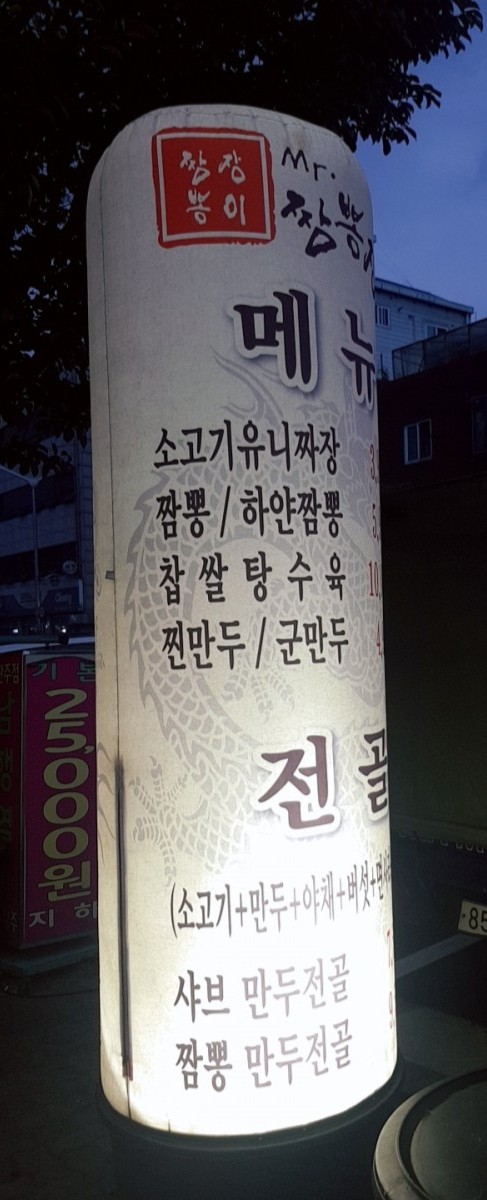 짬장
뽕이
Mr.
짬뽕
메뉴
소고기유니짜장
짬뽕 / 하얀짬뽕
찹쌀탕수육
찐만두 / 군만두
전골
(소고기+만두+야채+버섯+면사리
샤브 만두전골
짬뽕 만두전골
기본
25,000원
지하
85